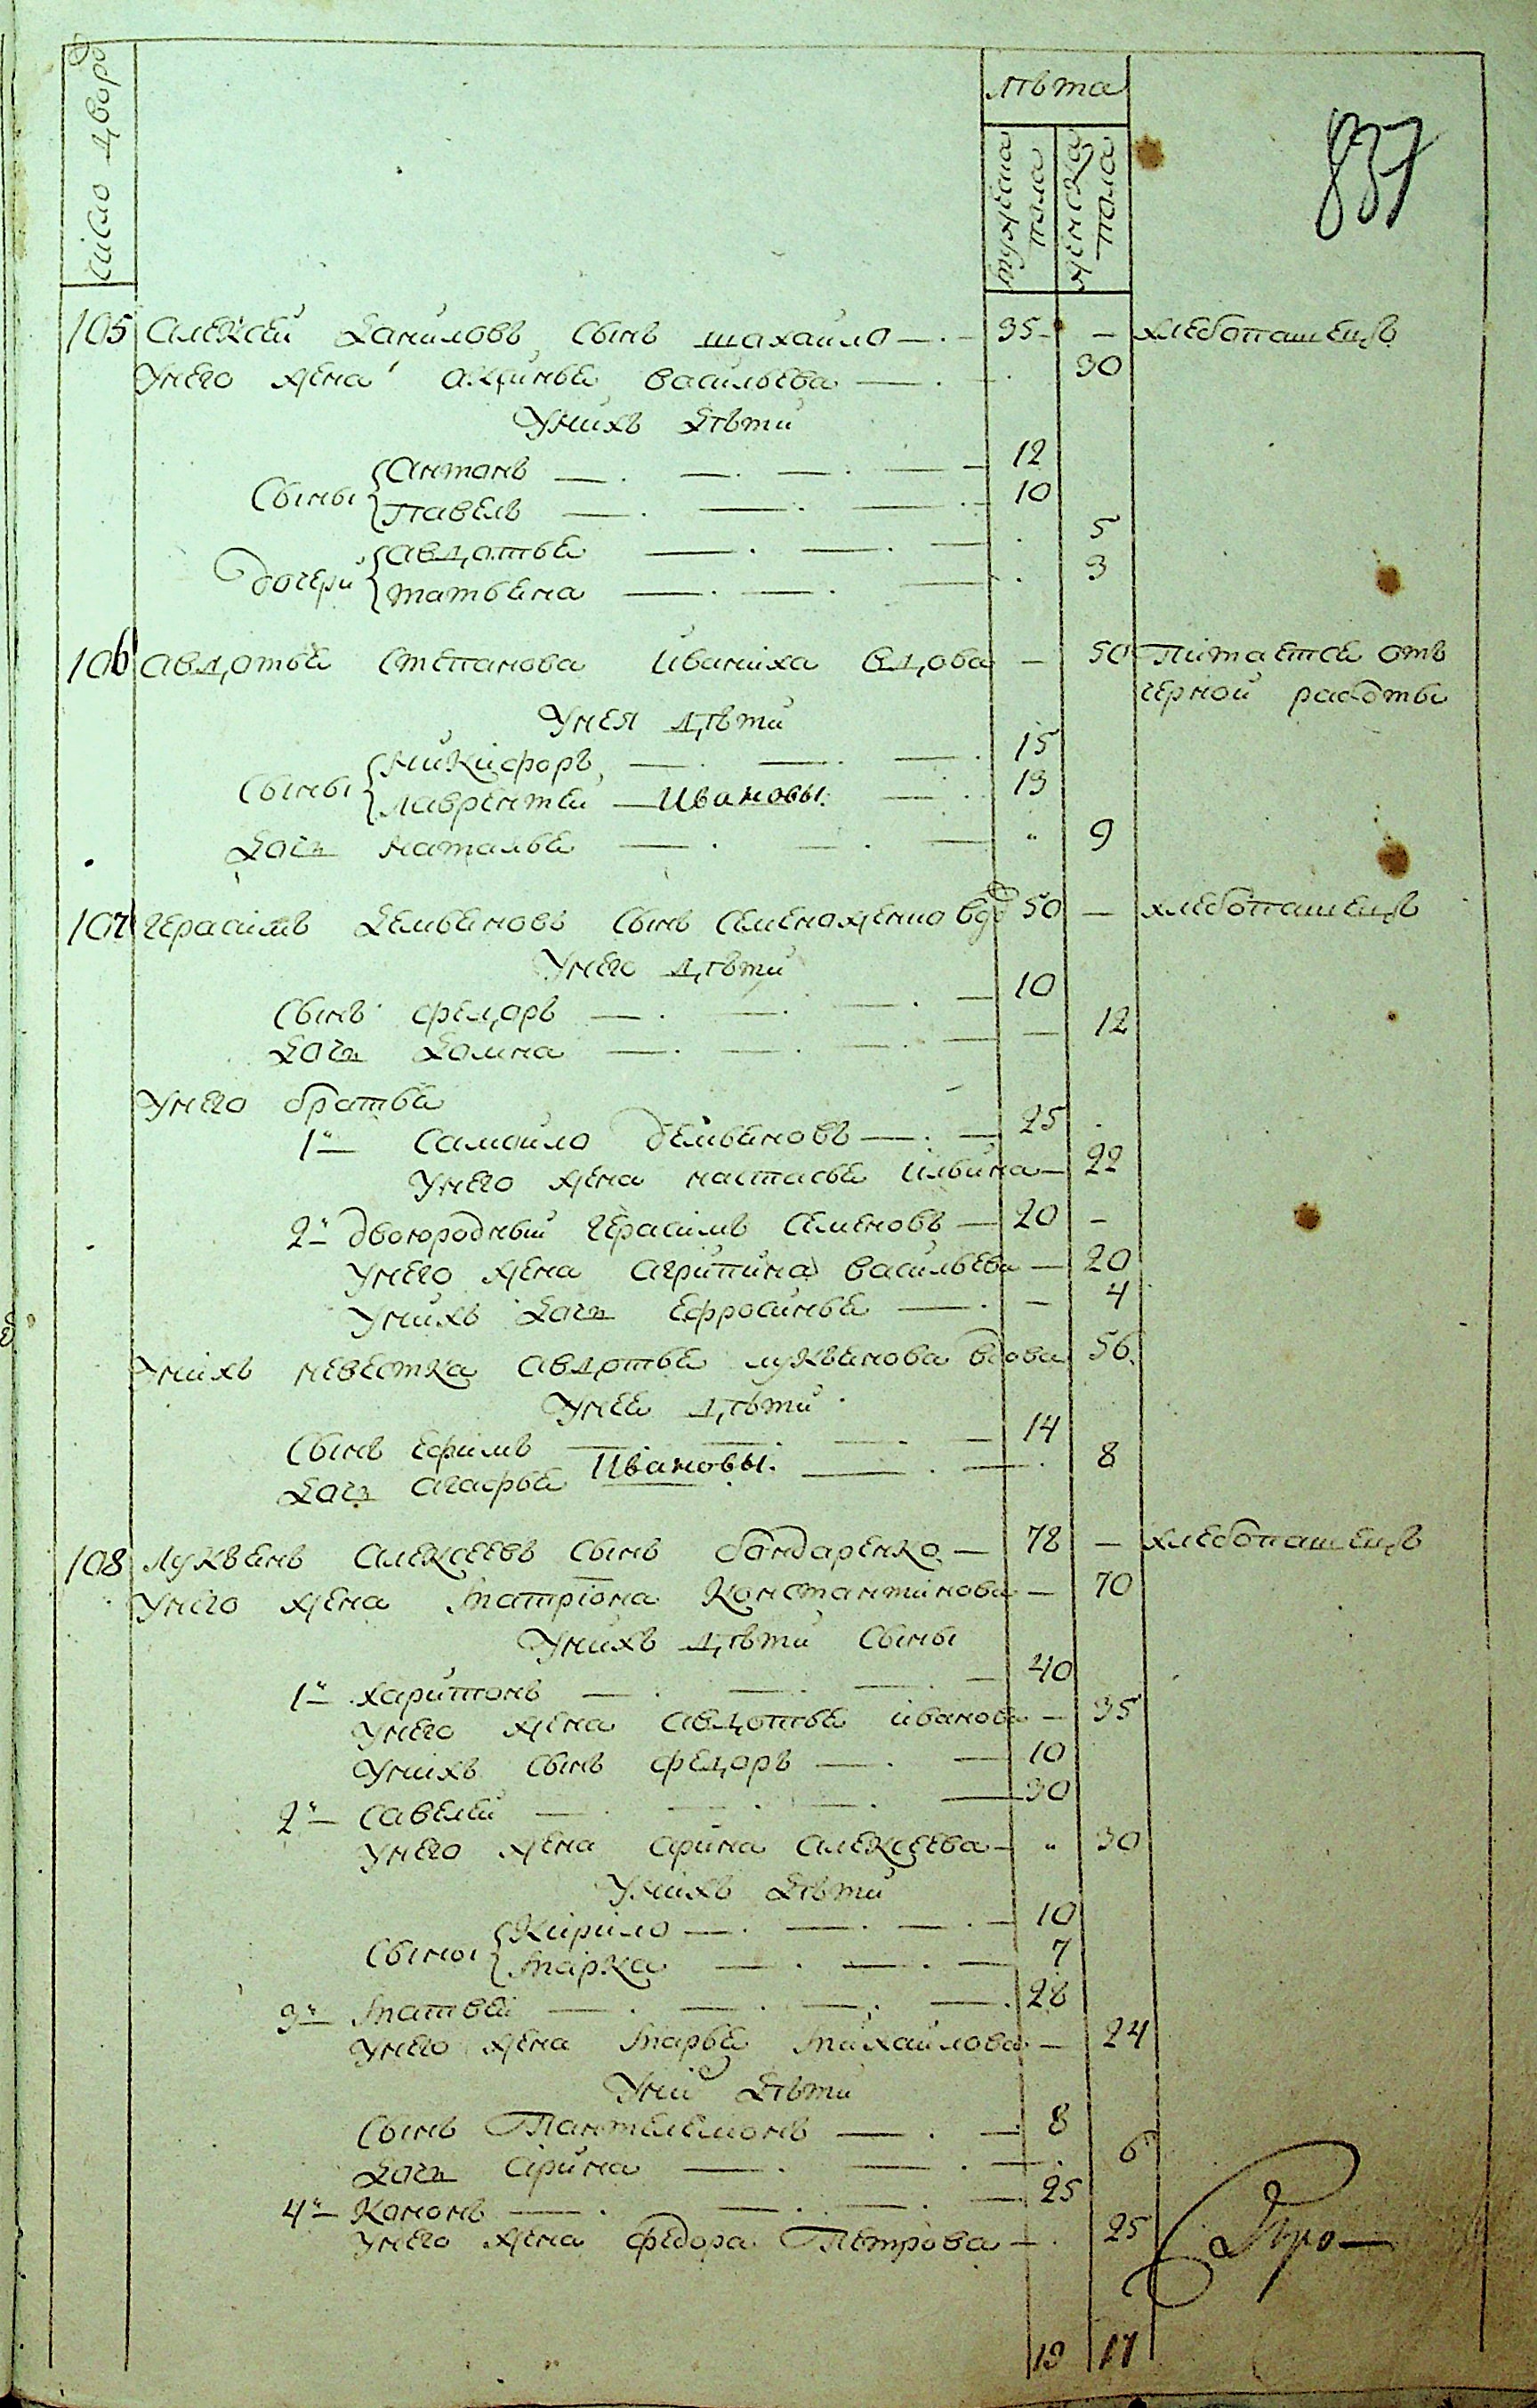 число дворо
лѣта
мужеска пола
женска пола
837
105 Алексей Данилов сынъ шахайло 35 — хлебопашецъ
Унего жена акцинья васильева 30
Унихъ дѣти
Сыны Антонъ 12
Павелъ 10
дочери авдотья 5
татьяна 3
106 авдотья степанова иваниха вдова — 50 Питается отъ
черной работы
Унея дѣти
Сыны Никифоръ 15
Лаврентей Ивановы 13
дочь Наталья 9
107 Герасимъ Демьяновъ сынъ семеноженко вдо 50 — хлебопашецъ
Унего дѣти
сынъ федоръ 10
дочь Домна — 12
Унего братья
1й Самойло демьяновъ 25
Унего жена настасья ильина 22
2й двоюродный Герасимъ Семеновъ 20 —
Унего жена агрипина васильева 20
Унихъ дочь Ефросинья — 4
Унихъ невестка авдотья лукьянова вдова 56
Унее дѣти
Сынъ Ефимъ 14
Ивановы.
дочь агафья 8
108 Лукьянъ алексеевъ сынъ бондаренко 78 — хлебопашецъ
Унего жена матриона Константинова 70
Унихъ дѣти сыны
1й харитонъ 40
Унего жена авдотья иванова 35
Унихъ сынъ федоръ 10
2й савелей 30
Унего жена арина алексеева „ 30
Унихъ дѣти
сыны Кирило 10
марко 7
3й матвей 28
Унего жена марья михайлова 24
Уних дѣти
Сынъ Пантелемонъ 8
дочь арина 6
4й Кононъ 25
Унего жена федора Петрова 25
19 17